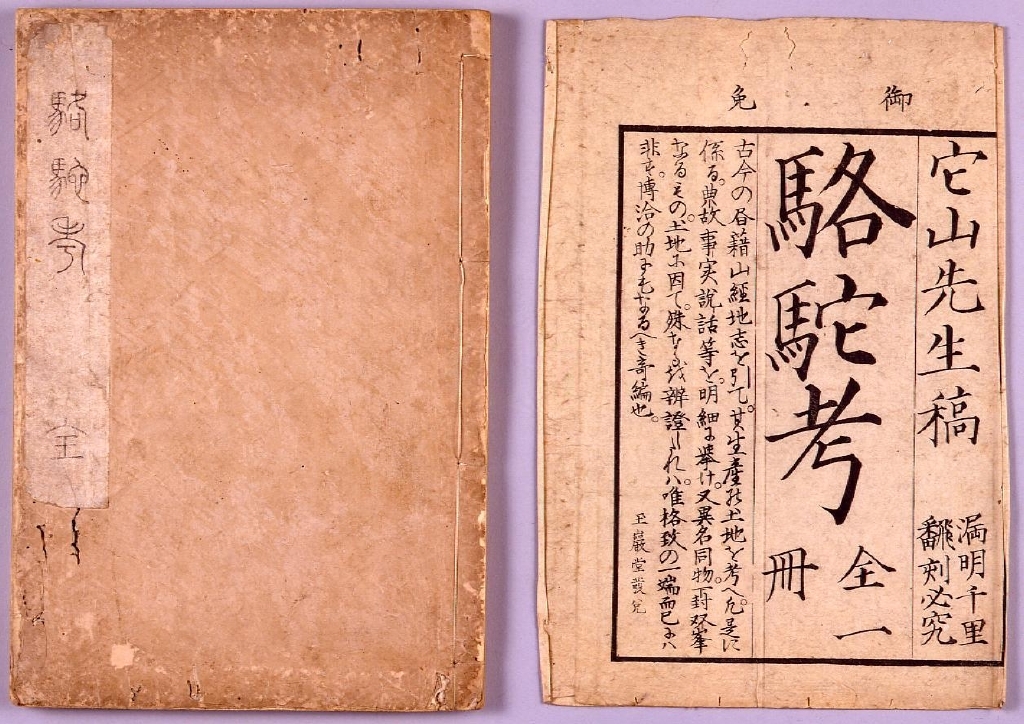 駱駝考
全
御免
它山先生稿
漏明千里
翻刻必究
駱駝考
全一
冊
古今の昼藉山經地志を引て。其生産の土地を考へ。凡是に
係る。典故事実。說話等を。明細に挙け。又異名同物一封双峯
なるもの。土地に因て。殊なるを辨證したれハ。唯格致の一端而已にハ
非す。博洽の助ともなるへき奇編也。
玉巖堂發兌